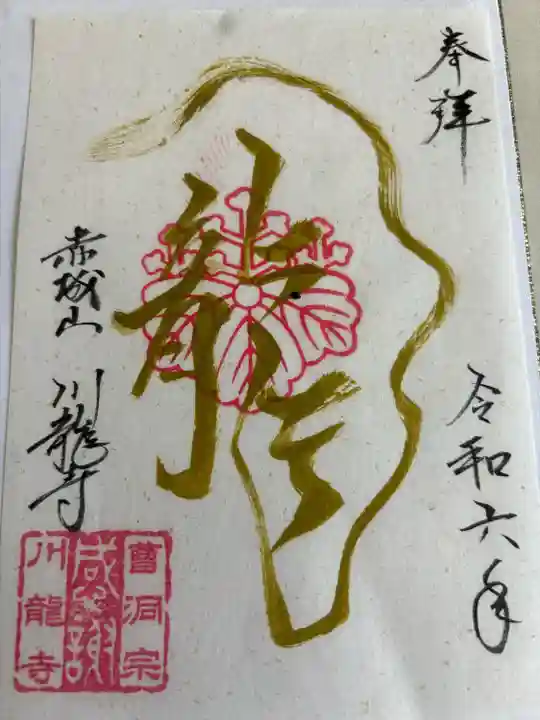 奉拝
令和六年
龍
赤城山 川龍寺
曹洞宗
感謝
川龍寺